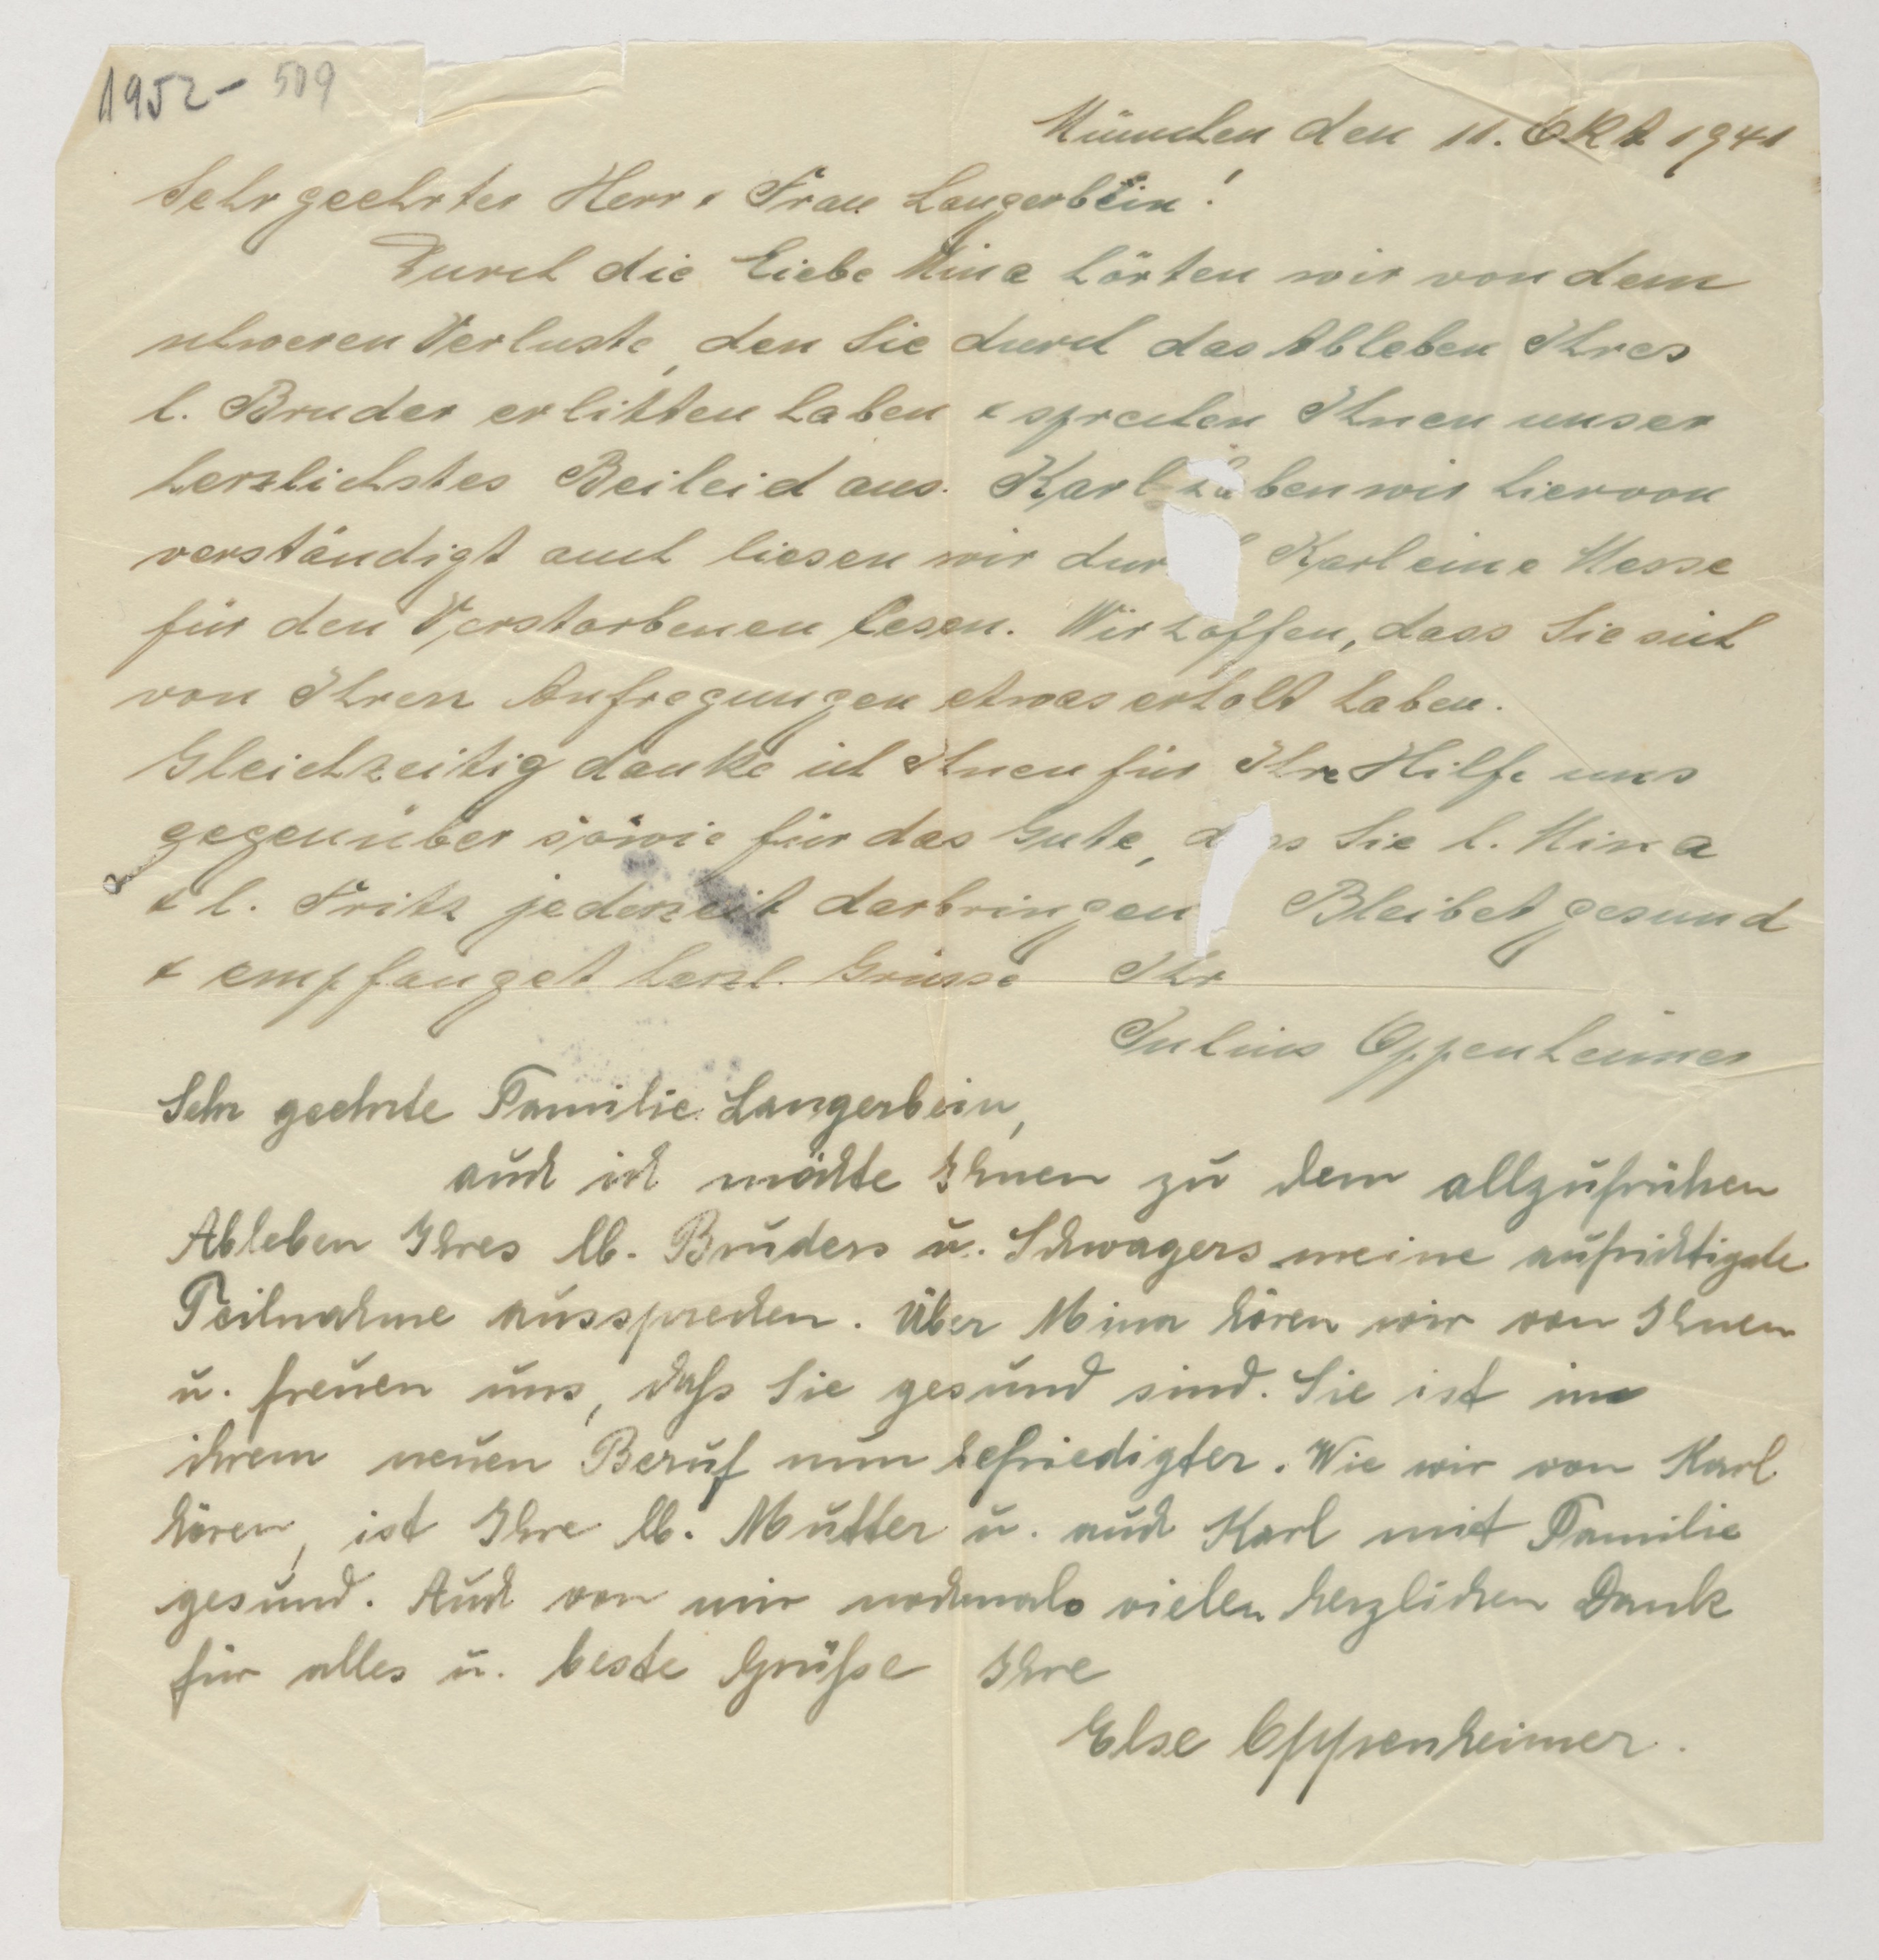 1952-509
München den 11. Okt 1941
Sehr geehrter Herr & Frau Langerbein!
Durch die liebe Mina hörten wir von dem
schweren Verluste, den Sie durch das Ableben Ihres
l. Bruder erlitten haben & sprechen Ihnen unser
herzlichstes Beileid aus. Karl haben wir hiervon
verständigt auch liesen wir durch Karl eine Messe
für den Verstorbenen lesen. Wir hoffen, dass Sie sich
von Ihren Aufregungen etwas erholt haben.
Gleichzeitig danke ich Ihnen für Ihre Hilfe uns
gegenüber sowie für das Gute, das Sie l. Mina
& l. Fritz jederzeit darbringen Bleibet gesund
& empfanget herzl. Grüsse Ihr
Julius Oppenheimer
Sehr geehrte Familie Langerbein,
auch ich möchte Ihnen zu dem allzufrühen
Ableben Ihres lb. Bruders u. Schwagers meine aufrichtigste
Teilnahme aussprechen. Über Mina hören wir von Ihnen
u. freuen uns, daß Sie gesund sind. Sie ist in
ihrem neuen Beruf nun befriedigter. Wie wir von Karl
hören, ist Ihre lb. Mutter u. auch Karl mit Familie
gesund. Auch von mir nochmals vielen herzlichen Dank
für alles u. beste Grüße Ihre
Else Oppenheimer.